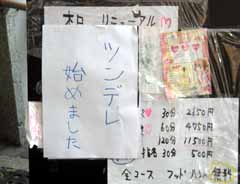 リニューアル
ツンデレ
始めました
30分 2650円
60分 4750円
120分 11500円
30分 500円
全コース フットバス 無料